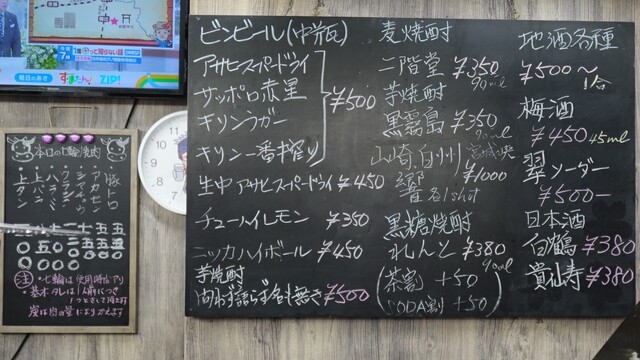 ビンビール(中瓶)
アサヒスーパードライ
サッポロ赤星
キリンラガー
キリン一番搾り
¥500
生中 アサヒスーパードライ ¥450
チューハイレモン ¥350
ニッカハイボール ¥450
芋焼酎
問わず語らず名も無き ¥500
麦焼酎
二階堂 ¥350
90ml
芋焼酎
黒霧島 ¥350
90ml
山崎,白州,宮城峡
響 ¥1000
1shot
黒糖焼酎
れんと ¥380
90ml
(茶割 +50
SODA割 +50)
地酒各種
¥500～
1合
梅酒
¥450 45ml
翠ソーダー
¥500
日本酒
白鶴 ¥380
貴仙寿 ¥380
本日の七輪焼肉
豚トロ
アカセン
シマアツ
上タン
注
・七輪は使用時間アリ
・基本タレは1人前につき
ZIP!